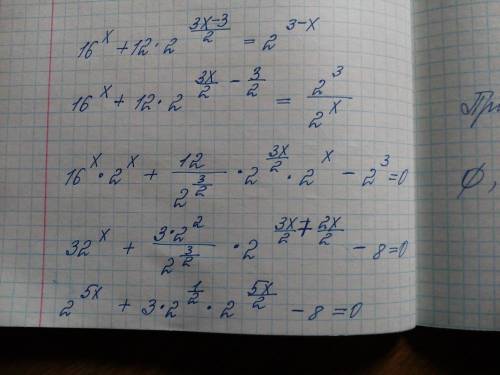 16^x + 12 · 2^((3x-3)/2) = 2^(3-x)
16^x + 12 · 2^(3x/2 - 3/2) = 2^3/2^x
16^x · 2^x + 12/2^(3/2) · 2^(3x/2) · 2^x - 2^3 = 0
32^x + 3·2^2/2^(3/2) · 2^(3x/2 + 2x/2) - 8 = 0
2^(5x) + 3 · 2^(1/2) · 2^(5x/2) - 8 = 0
При
∅,